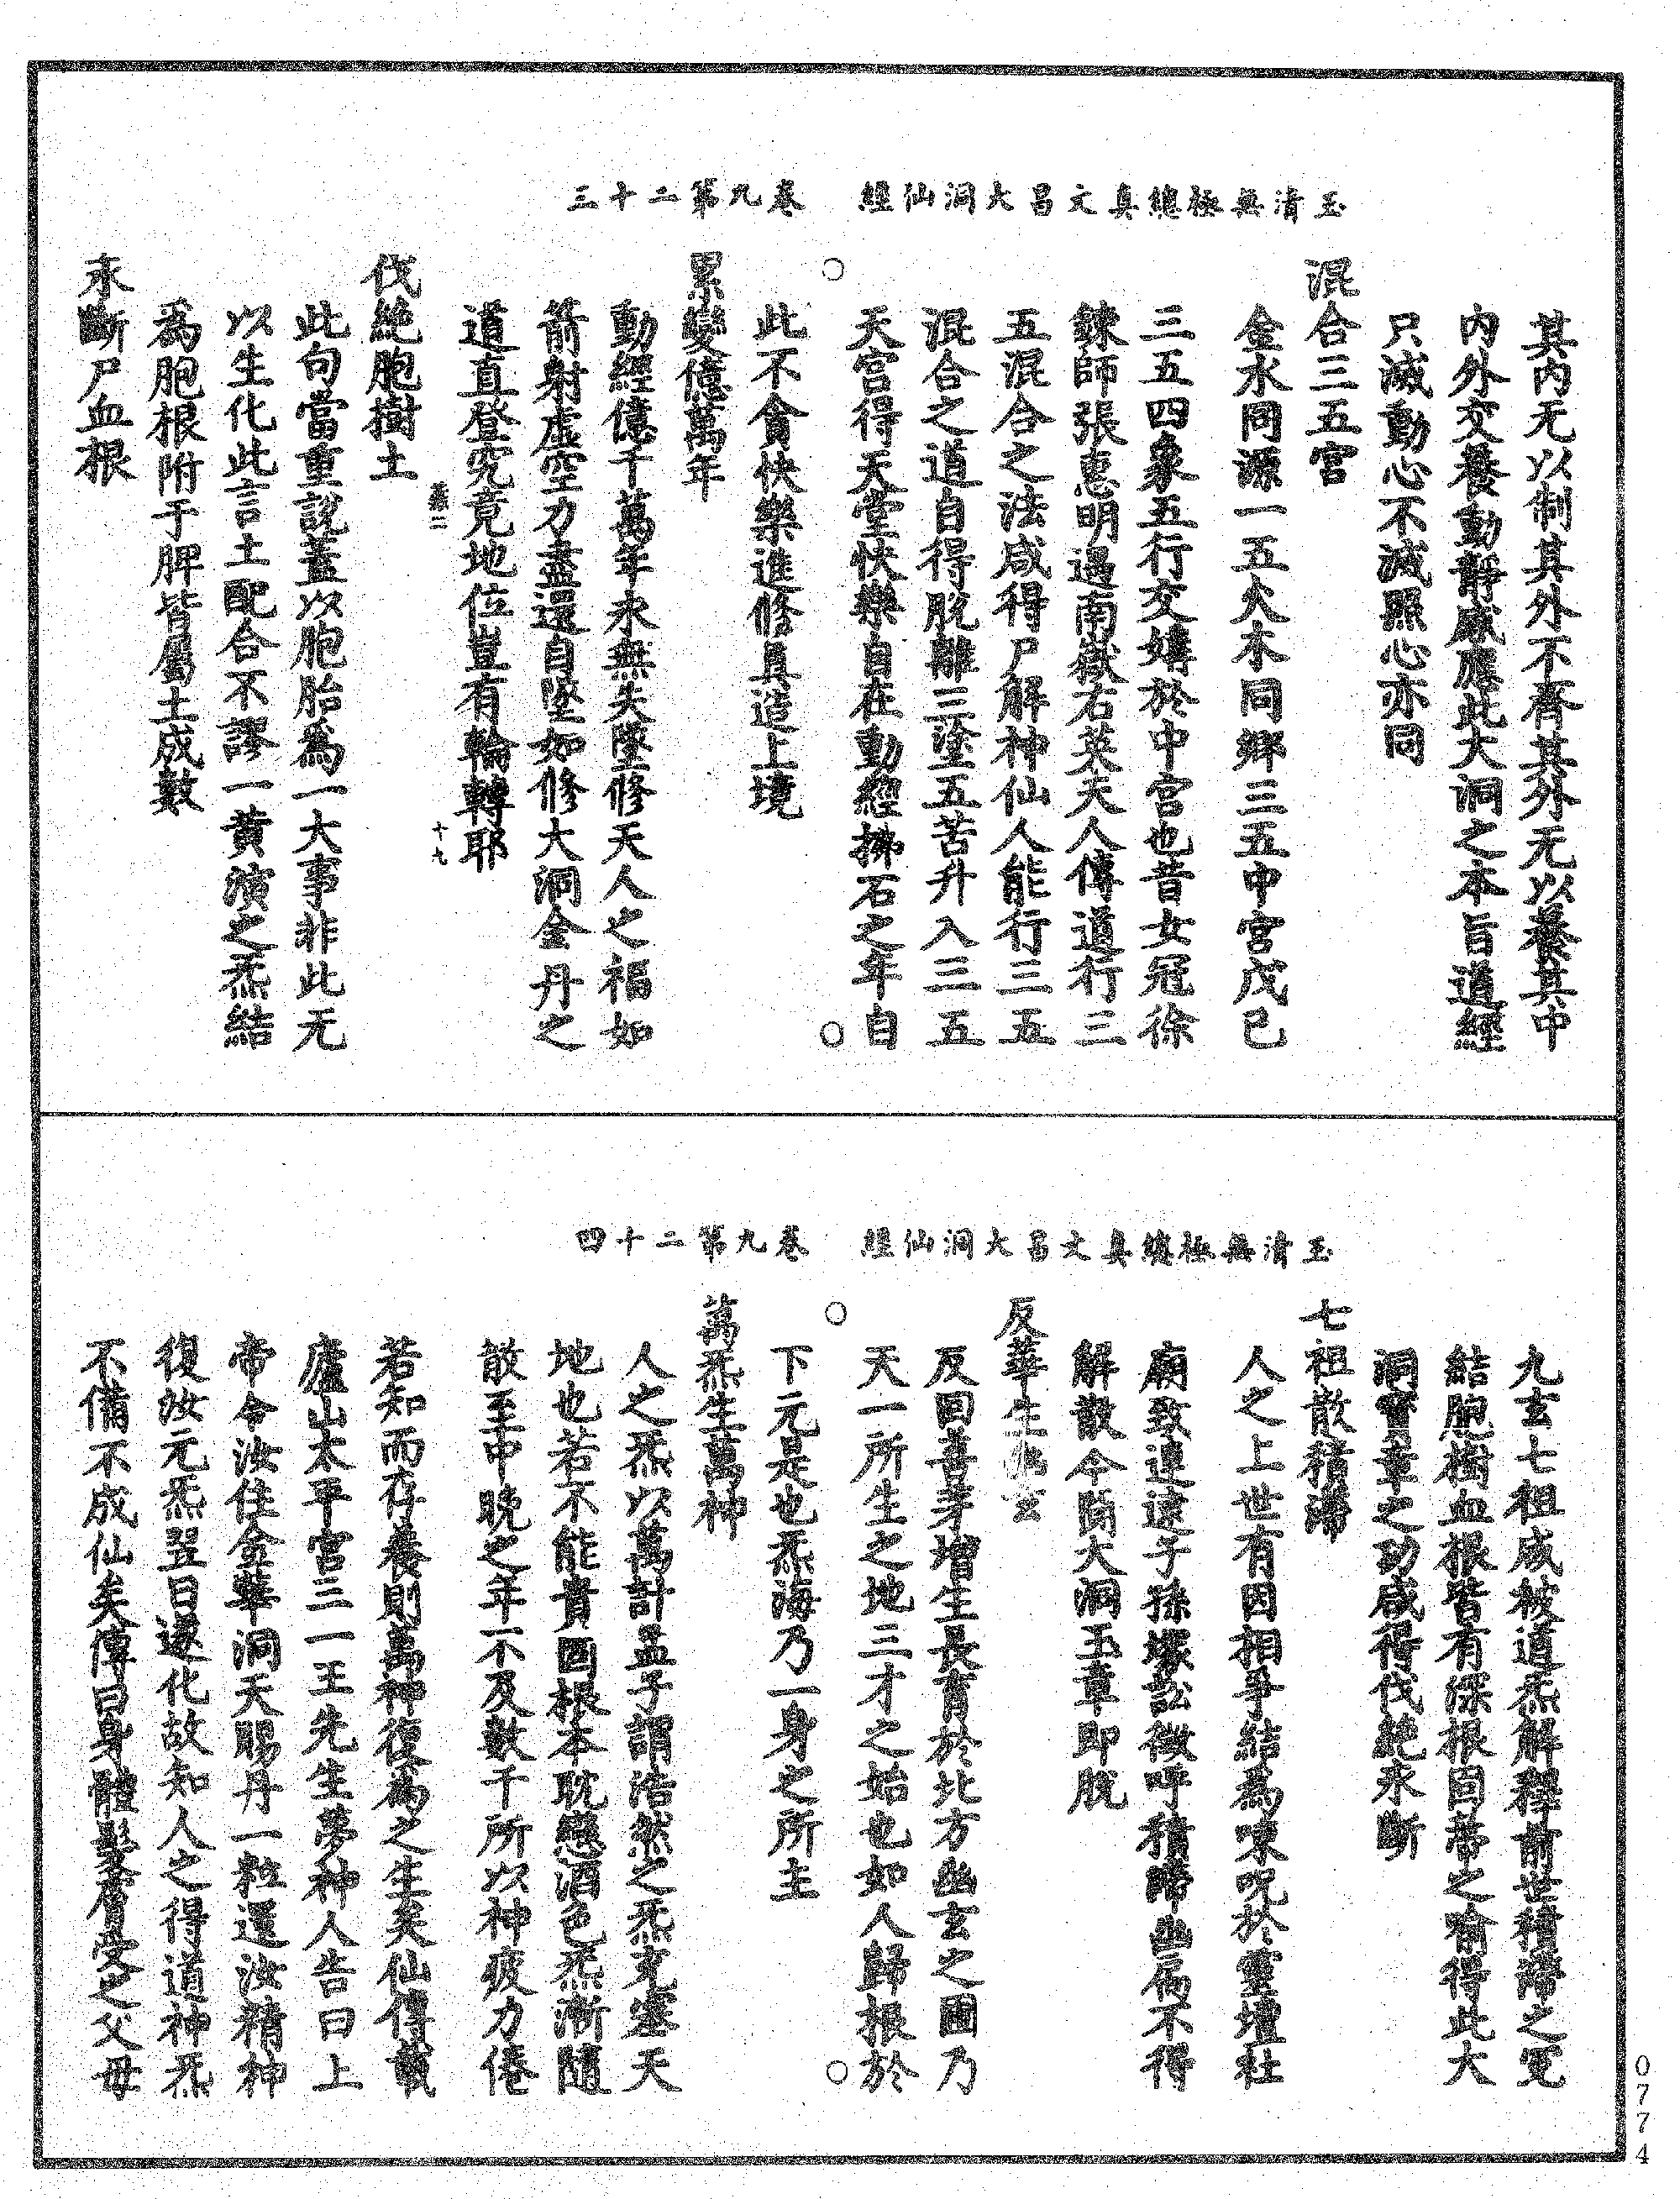 玉清無極總真文昌大洞仙經　卷九第二十三
其内无以制其外不齊其外无以養其中
内外交養動靜感應此大洞之本旨道經
只滅動心不滅照心亦同
混合三五宮
金水同源一五火木同鄉三五中宮戊己
三五四象五行交媾於中宮也昔女冠徐
鍊師張惠明遇南嶽右英天人傳道行三
五混合之法咸得尸解神仙人能行三五
混合之道自得脫離三塗五苦升入三五
天宮得天堂快樂自在動經拂石之年自
此不貪快樂進修真造上境
累變億萬年
動經億千萬年永無失墜修天人之福如
箭射虛空力盡還自墜如修大洞金丹之
道直登究竟地位豈有輪轉耶
卷二　十九
伐絶胞樹土
此句當重說蓋以胞胎為一大事非此无
以生化此言土配合不謬一黃演之炁結
為胞根附于脾皆屬土成數
永斷尸血根
玉清無極總真文昌大洞仙經　卷九第二十四
九玄七祖咸被道炁解釋前世積滯之冤
結胞樹血根皆有深根固蒂之喻得此大
洞寶章之功咸得伐絶永斷
七祖散積滯
人之上世有因相爭結為咮呪於靈壇社
廟致連逮子孫壞訟徵呼積滯幽局不得
解散今簡大洞玉章即脫
反華生北玄
反因善芽增生長育於北方幽玄之圃乃
天一所生之地三才之始也如人歸根於
下元是也炁海乃一身之所主
萬炁生萬神
人之炁以萬計孟子謂浩然之炁充塞天
地也若不能貴固根本耽戀酒色炁漸隨
散至中晚之年不及數千所以神疲力倦
若知而存養則萬神復為之生矣仙傳載
廬山太平宮三一王先生夢神人告曰上
帝令汝住金華洞天賜丹一粒還汝精神
復汝元炁翌日遂化故知人之得道神炁
不備不成仙矣傳曰身體髮膚受之父母
0774